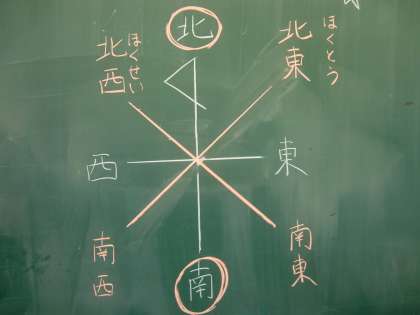 北
北西
ほくせい
北東
ほくとう
西
東
南西
南
南東